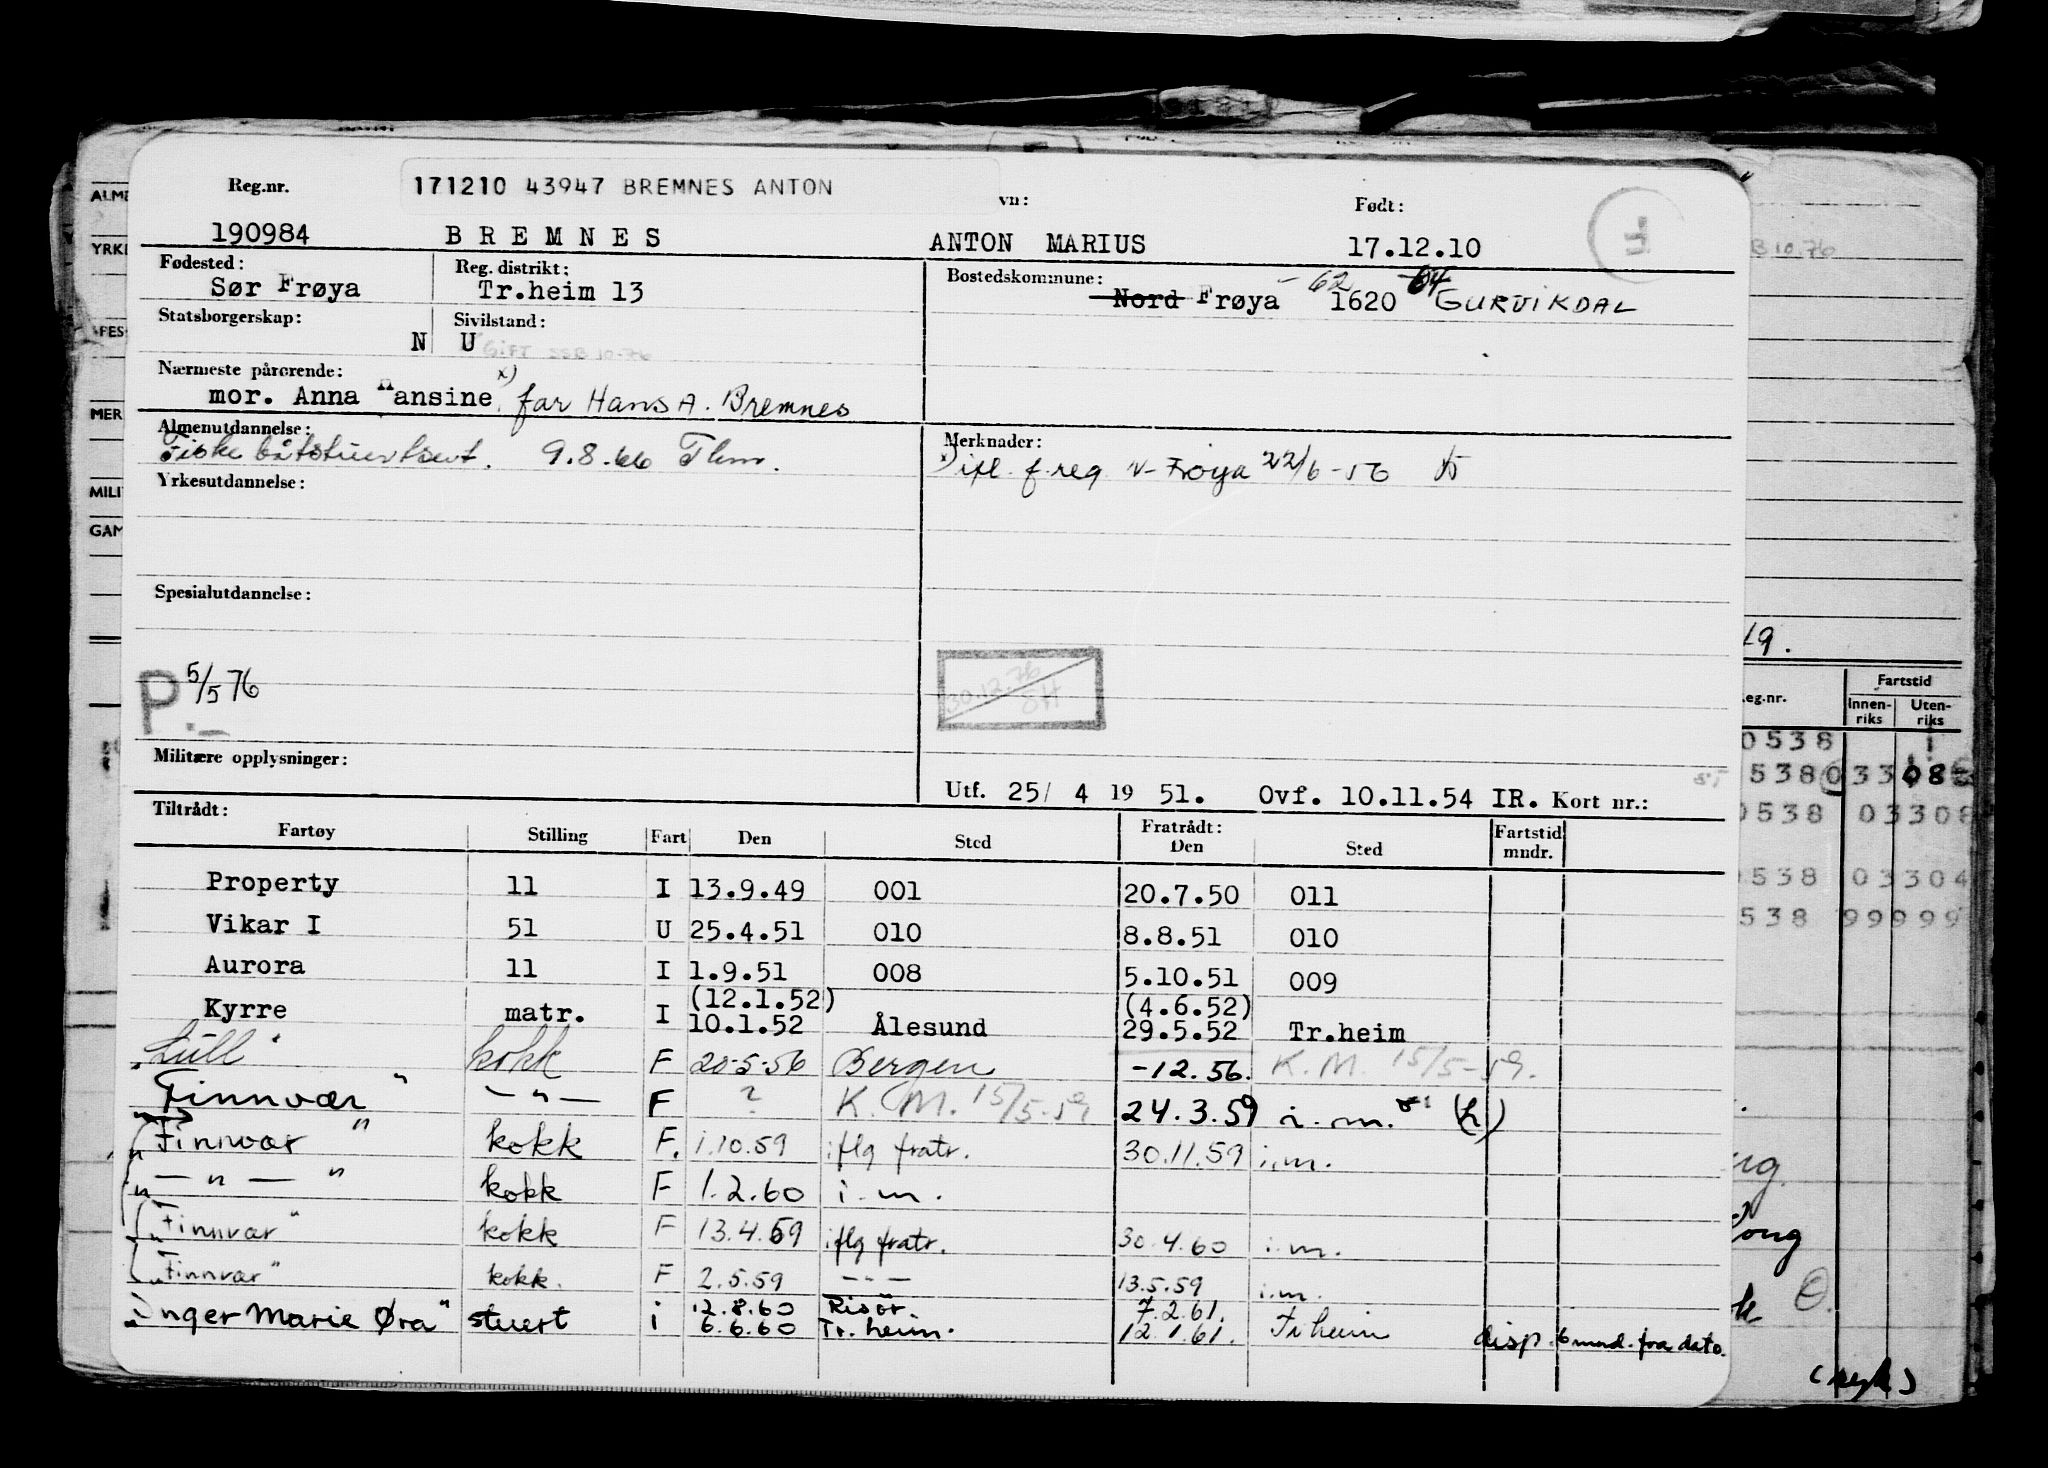 Reg.nr. 171210 43947 BREMNES ANTON vn: Født:
190984 BREMNES ANTON MARIUS 17.12.10
Fødested: Reg. distrikt: Bostedskommune: -62 -64
Sør Frøya Tr.heim 13 Nord Frøya 1620 GURVIKDAL
Statsborgerskap: Sivilstand:
N U GIFT SSB 10-76
Nærmeste pårørende: x)
mor. Anna Hansine, far Hans A. Bremnes
Almenutdannelse: Merknader:
Fiskebåtstuertsert. 9.8.66 Thm. x) ifl. f.reg N-Frøya 22/6-56
Yrkesutdannelse:
Spesialutdannelse:
P 5/5 76 30.12.76
Militære opplysninger:
Utf. 25/ 4 19 51. Ovf. 10.11.54 IR. Kort nr.:
Tiltrådt: Fratrådt: Fartstid
Fartøy Stilling Fart Den Sted Den Sted mndr.
Property 11 I 13.9.49 001 20.7.50 011
Vikar I 51 U 25.4.51 010 8.8.51 010
Aurora 11 I 1.9.51 008 5.10.51 009
(12.1.52) (4.6.52)
Kyrre matr. I 10.1.52 Ålesund 29.5.52 Tr.heim
"Lull" kokk F 20-5-56 Bergen -12.56. K.M. 15/5-59.
"Finnvær" — " — F ? K.M. 15/5-59 24.3.59 i.m. (L)
"Finnvær" kokk F. 1.10.59 iflg fratr. 30.11.59 i.m.
" — " — " kokk F 1.2.60 i.m.
"Finnvær" kokk F 13.4.59 iflg fratr. 30.4.60 i.m.
"Finnvær" kokk. F 2.5.59 — " — 13.5.59 i.m.
12.8.60 Risør. 7.2.61.
"Inger Marie Øra" stuert i 6.6.60 Tr.heim. 12.1.61. Trheim disp. 6 mnd. fra dato.
ALME
YRKE
MER
MILI
GAM
B 10.76
19.
eg.nr. Fartstid
Innen-riks Uten-riks
0538
5380 33 08
0538 03308
538 03304
538 99999